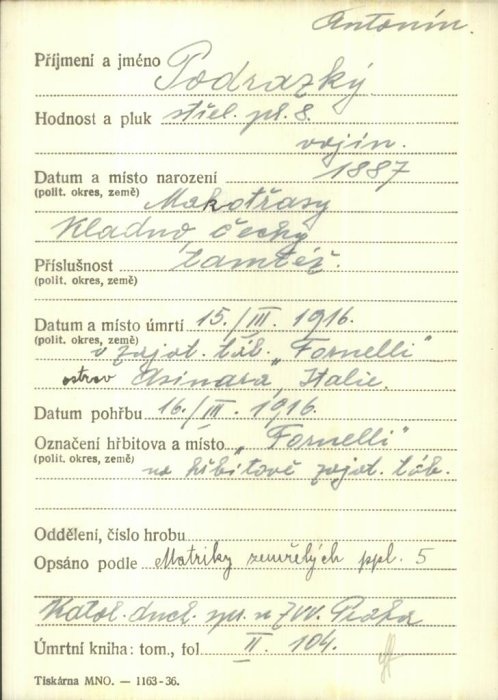 Antonín.
Příjmení a jméno Podrazký
Hodnost a pluk střel. pl. 8.
vojín.
Datum a místo narození 1887
(polit. okres, země) Makotřasy
Kladno, Čechy
Příslušnost tamtéž.
(polit. okres, země)
Datum a místo úmrtí 15./III. 1916.
(polit. okres, země) v zajat. táb. „Fornelli“
ostrov Asinara, Italie.
Datum pohřbu 16./III. 1916.
Označení hřbitova a místo „Fornelli“
(polit. okres, země) na hřbitově zajat. táb.
Oddělení, číslo hrobu
Opsáno podle Matriky zemřelých ppl. 5
Katol. duch. spr. u ZVV. Praha
Úmrtní kniha: tom., fol II. 104.
Tiskárna MNO. — 1163-36.